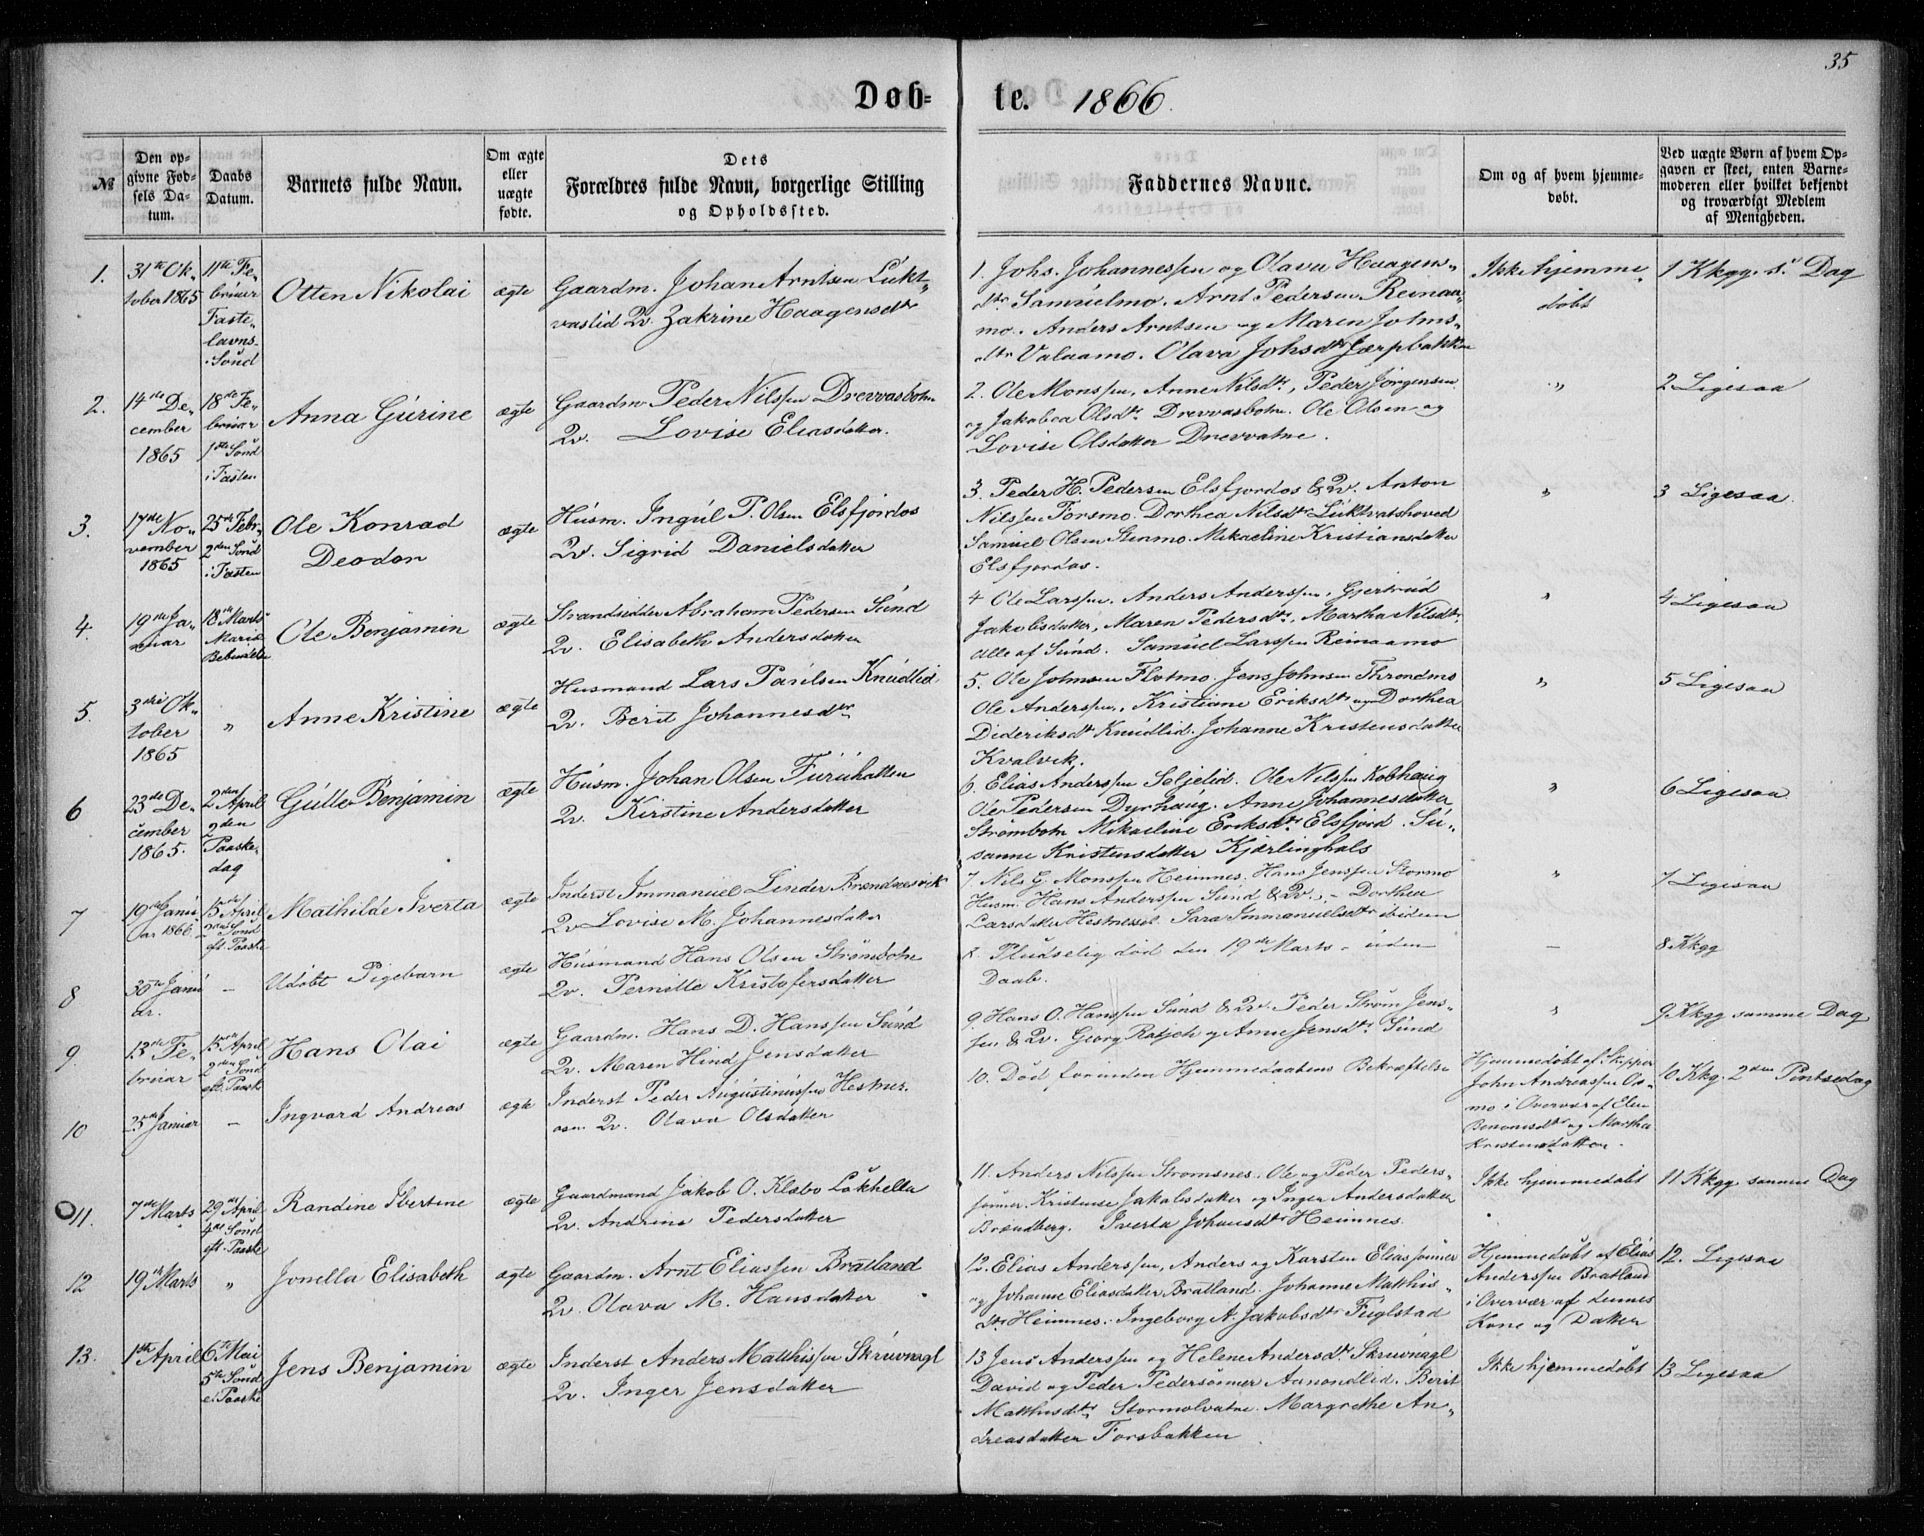 35
Døb= te. 1866.
№
Den op-
givne Fød-
sels Da-
tum.
Daabs
Datum.
Barnets fulde Navn.
Om ægte
eller
uægte
fødte.
Dets
Forældres fulde Navn, borgerlige Stilling
og Opholdssted.
Faddernes Navne.
Om og af hvem hjemme-
døbt.
Ved uægte Børn af hvem Op-
gaven er skeet, enten Barne-
moderen eller hvilket bekjendt
og troværdigt Medlem
af Menigheden.
1.
31te Ok-
tober 1865
11te Fe-
bruar
Faste-
lavns.
Sønd
Otten Nikolai
ægte
Gaardm. Johan Arntsen Lukt-
vaslid Qv. Zakrine Haagensdtr
1. Johs. Johannessen og Olava Haagens-
dtr Samuelmo. Arnt Pedersen Reinaa-
mo. Anders Arntsen og Maren Johns-
dtr Valaamo. Olava Johsdtr Jærpbakken
Ikke hjemme
døbt
1 Kkgg. s. Dag
2.
14de De-
cember
1865
18de Fe-
bruar
1ste Sønd
i Fasten
Anna Gurine
ægte
Gaardm Peder Nilssen Drevvasbotn
Qv. Lovise Eliasdatter.
2. Ole Monssen, Anne Nilsdtr, Peder Jörgensen
og Jakobea Olsdtr Drevvasbotn. Ole Olsen og
Lovise Olsdatter Drevvatne.
"
2 Ligesaa
3.
17de No-
vember
1865
25de Febr.
2den Sønd
i Fasten
Ole Konrad
Deodor
ægte
Husm. Ingul P. Olsen Elsfjordos
Qv. Sigrid Danielsdatter
3. Peder H. Pedersen Elsfjordos & Qv. Anton
Nilssen Forsmo. Dorthea Nilsdtr Luktvatshoved
Samuel Olsen Stenmo. Mekaeline Kristiansdatter
Elsfjordos.
"
3 Ligesaa.
4.
19de Ja-
nuar
18de Marts
Mariæ
Bebudelse
Ole Benjamin
ægte
Strandsidder Abraham Pedersen Sund
Qv. Elisabeth Andersdatter
4 Ole Larssen, Anders Anderssen, Gjertrud
Jakobsdatter, Maren Pedersdtr, Martha Nilsdtr,
alle af Sund. Samuel Larssen Reinaamo
"
4 Ligesaa
5.
3die Ok-
tober
1865
"
Anne Kristine
ægte
Husmand Lars Paulsen Knudlid
Qv. Berit Johannesdtr
5. Ole Johnsen Flotmo. Jens Johnsen Throndmo
Ole Anderssen, Kristiane Eriksdtr og Dorthea
Dideriksdtr Knudlid. Johanne Kristensdatter
Kvalvik.
"
5 Ligesaa
6
23de De-
cember
1865.
2den April
2den
Paaske-
dag
Gutter Benjamin
ægte
Husm. Johan Olsen Furuhatten
Qv. Kirstine Andersdatter
6. Elias Anderssen Seljelid. Ole Nilssen Kobhaug
Ole Pedersen Dyrhaug. Anne Johannesdatter
Strømbotn Mikaeline Eriksdtr Elsfjord. Su-
sanne Kristensdatter Kjærlinghals
"
6 Ligesaa
7
19de Janu-
ar 1866.
15de April
2den Sønd
eft. Paaske
Mathilde Iverta
ægte
Inderst Immanuel Linder Brændnesvik
Qv Lovise M. Johannesdatter
7 Nils G. Monssen Heimnes. Hans Jenssen Stormo
Husm. Hans Anderssen Sund & Qv. - Dorthea
Larsdatter Hestnessel. Sara Immanuelsdtr ibidem
"
7 Ligesaa
8
30te Janu
ar.
-
Udøbt Pigebarn
ægte
Husmand Hans Olsen Strömbotn
Qv. Pernille Kristofersdatter
8. Pludselig død den 19de Marts - uden
Daab.
-
8 Kkgg
9
13de Fe-
bruar
15de April
2den Sønd
eft. Paask
Hans Olai
ægte
Gaardm. Hans D. Hanssen Sund
Qv. Maren Hind Jensdatter
9. Hans O. Hanssen Sund & Qv. Peder Strøm Jens-
sen & Qv. Georg Rasch og Anne Jensdtr Sund
"
9 Kkgg samme Dag
10
25de Januar
-
Ingvard Andreas
ægte
Inderst Peder Augustinussen Hestnes.
osen. Qv. Olava Olsdatter
10. Død forinden Hjemmedaabens Bekræftelse
Hjemmedøbt af Skipper
John Andreassen Os-
mo i Overvær af Elen
Benonisdtr og Martha
Kristensdatter.
10 Kkg. 2den Pintsedag
11.
7de Marts
29de April
4de Sønd
eft. Paaske
Randine Ibertine
ægte
Gaardmand Jakob O. Klæbo Løkhella
Qv. Andrine Pedersdatter
11. Anders Nilssen Strømsnes. Ole og Peder Peders-
sønner. Kristense Jakobsdatter og Inger Andersdatter
Brændberg. Iverta Johansdtr Heimnes.
Ikke hjemmedøbt
11 Kkgg samme Dag
12
19de Marts
"
Jonella Elisabeth
ægte
Gaardm. Arnt Eliassen Bratland
Qv. Olava M. Hansdatter
12. Elias Anderssen, Anders og Karsten Eliassønner
og Johanne Eliasdatter Bratland. Johanne Matthis-
dtr Heimnes. Ingeborg A. Jakobsdtr Fuglstad
Hjemmedøbt af Elias
Anderssen Bratland
i Overvær af dennes
Kone og Datter
12. Ligesaa
13.
1ste April
6te Mai
5te Sønd
e. Paaske
Jens Benjamin
ægte
Inderst Anders Matthissen Skruvnagl
Qv. Inger Jensdatter
13 Jens Anderssen og Helene Andersdtr Skruvnagl
David og Peder Pedersønner Aanondlid. Berit
Matthisdtr Stormolvatne. Margrethe An-
dreasdatter Forsbakken
Ikke hjemmedøbt
13 Ligesaa